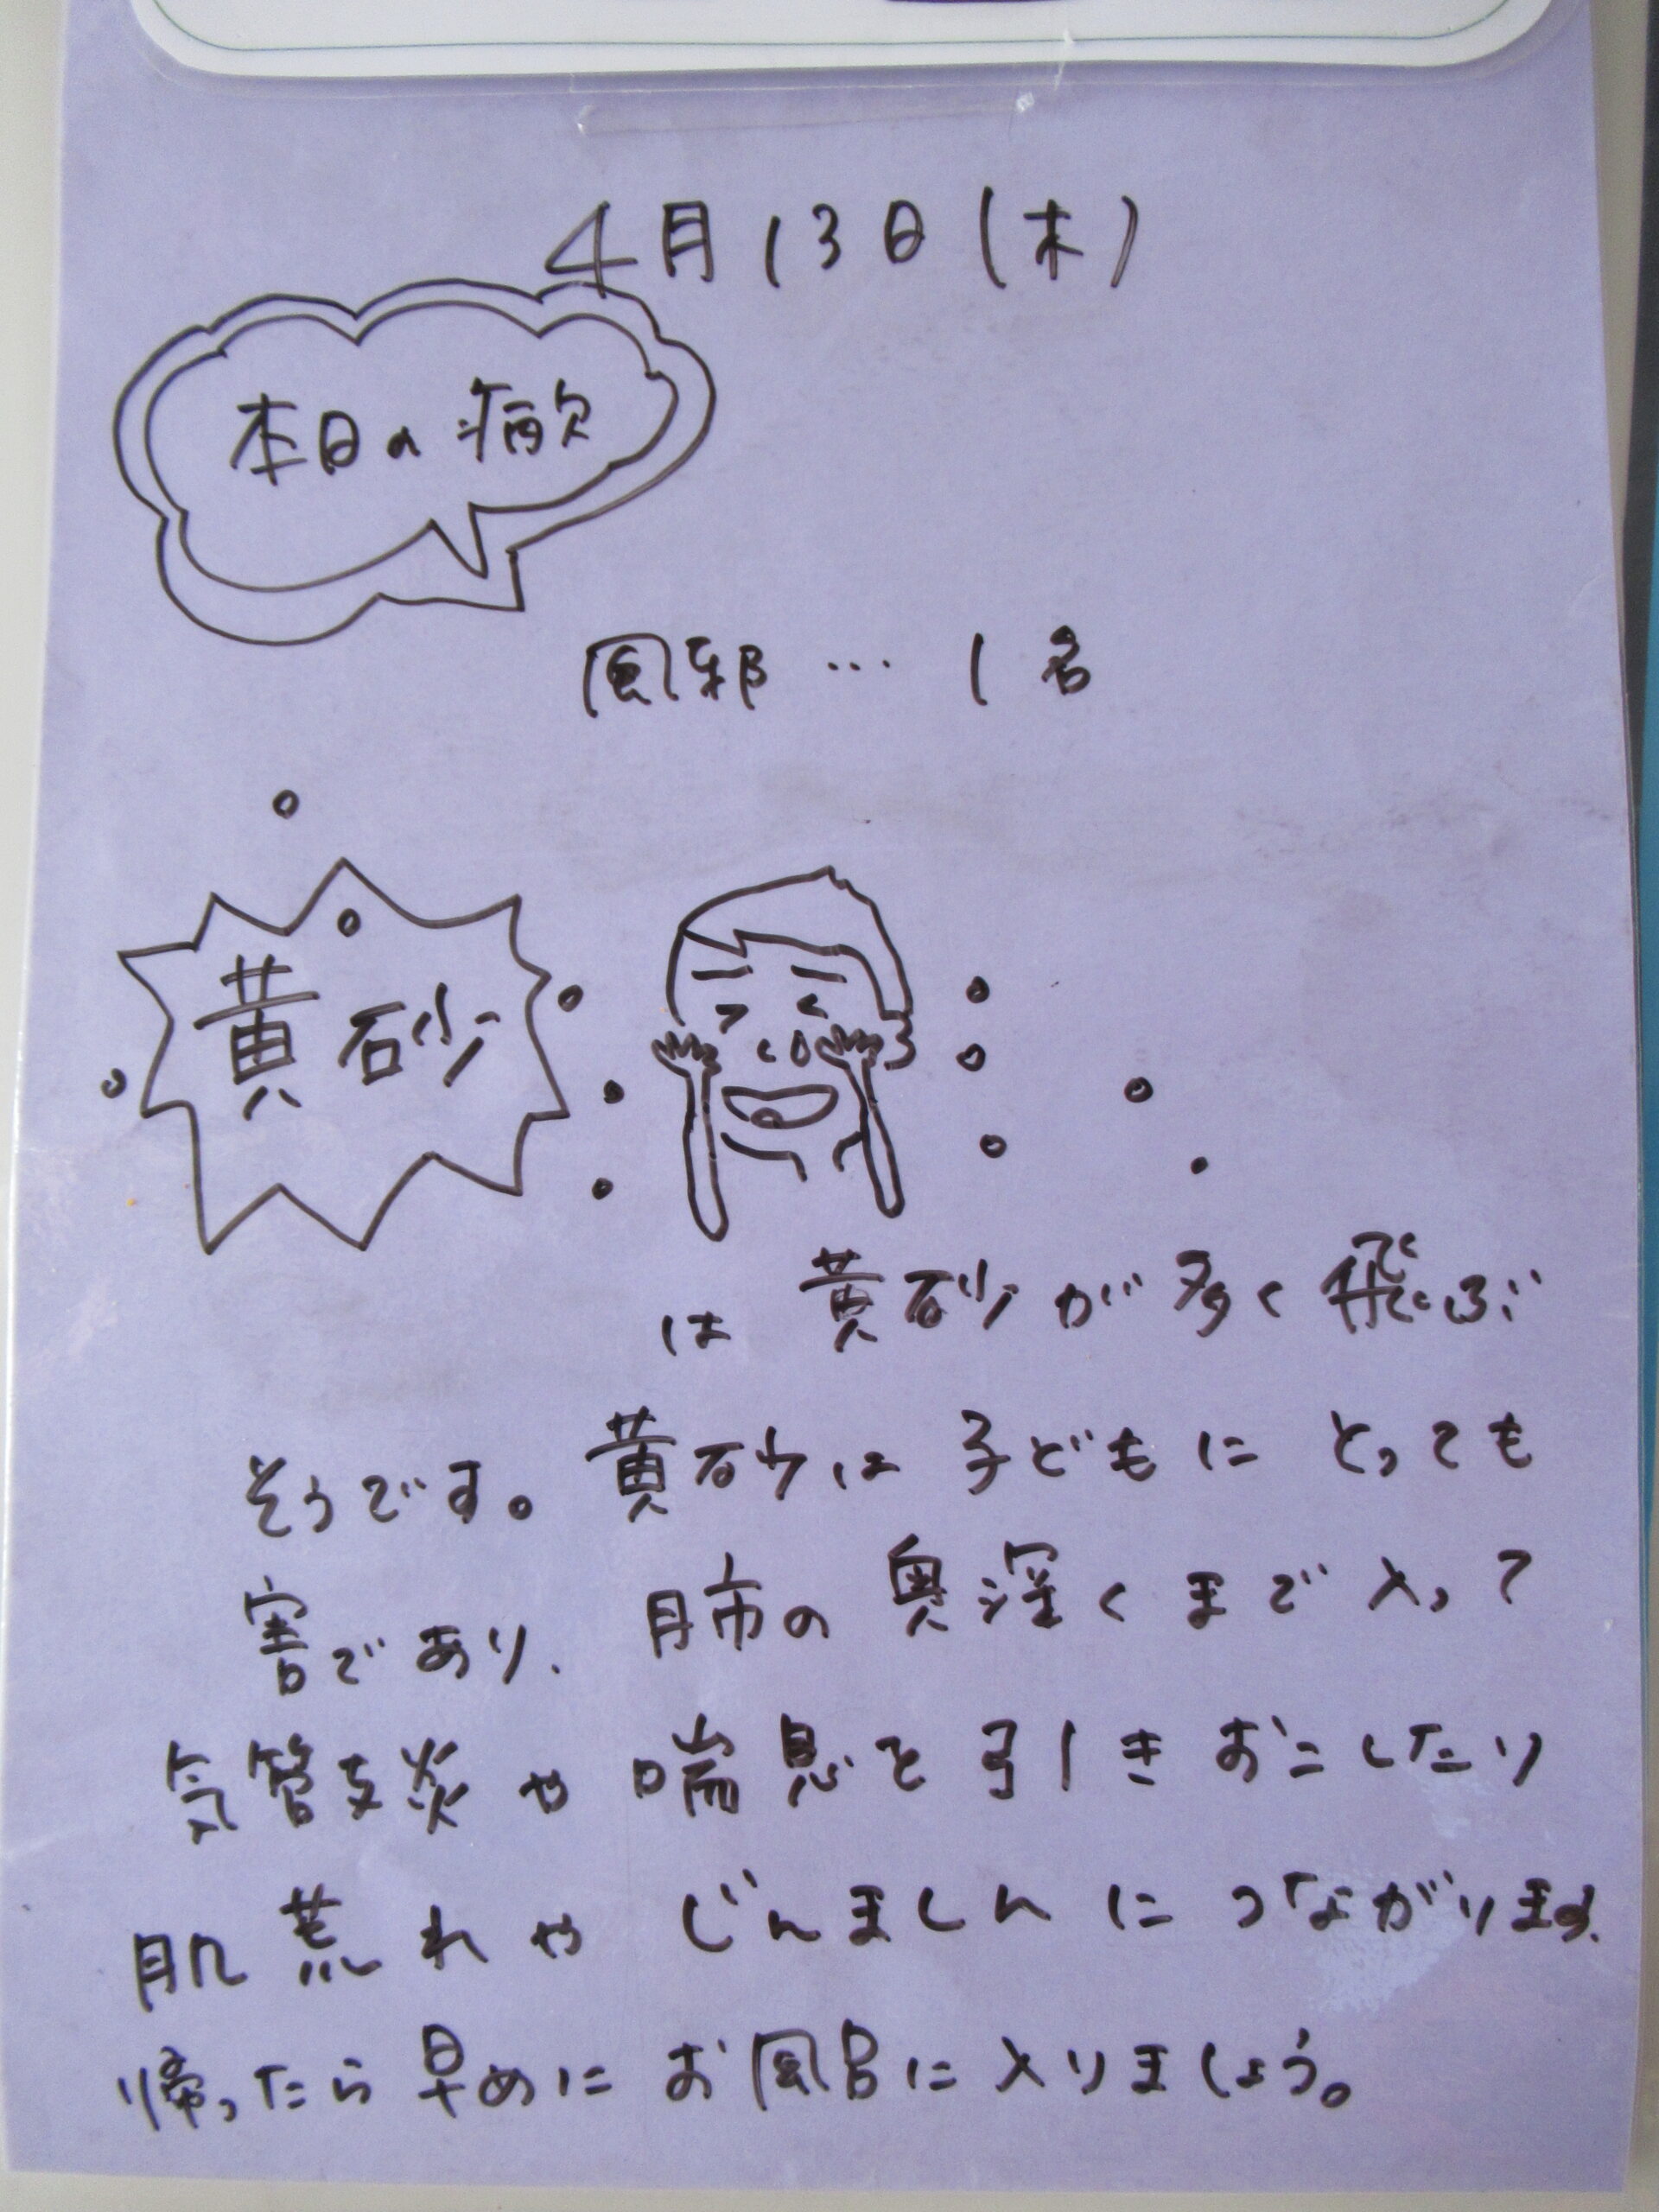 4月13日(木)
本日の病欠
風邪…1名
黄砂
は黄砂が多く飛ぶ
そうです。黄砂は子どもにとっても
害であり、肺の奥深くまで入って
気管支炎や喘息を引きおこしたり
肌荒れやじんましんにつながります。
帰ったら早めにお風呂に入りましょう。